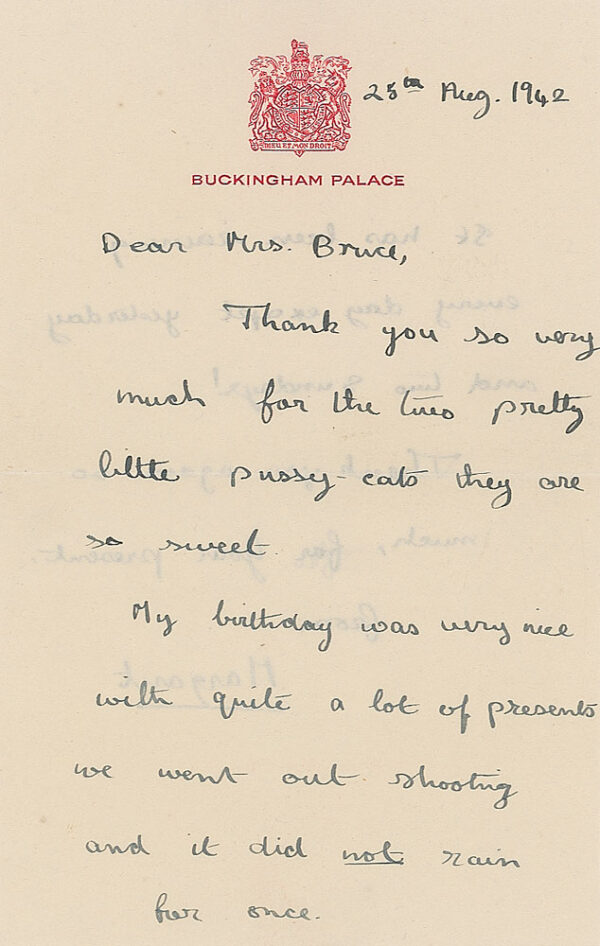 25th Aug. 1942
DIEU ET MON DROIT
BUCKINGHAM PALACE
Dear Mrs. Bruce,
Thank you so very
much for the two pretty
little pussy-cats they are
so sweet.
My birthday was very nice
with quite a lot of presents
we went out shooting
and it did not rain
for once.